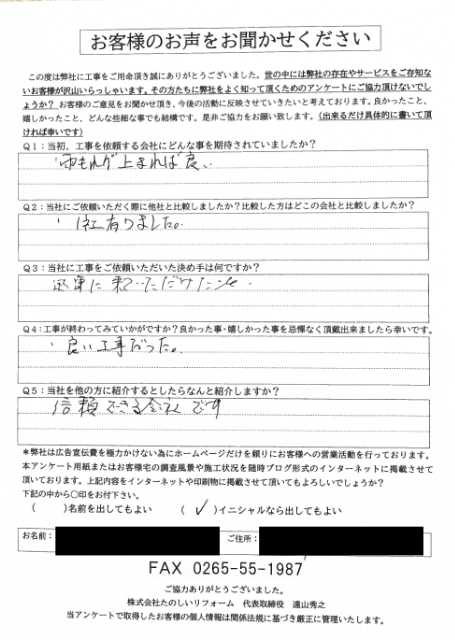 お客様のお声をお聞かせください
この度は弊社に工事をご用命頂き誠にありがとうございました。世の中には弊社の存在やサービスをご存知ない
お客様が沢山いらっしゃいます。その方たちに弊社をよく知って頂くためのアンケートにご協力頂けないでし
ょうか？ お客様のご意見をお聞かせ頂き、今後の活動に反映させていきたいと考えております。良かったこと、
嬉しかったこと、どんな些細な事でも結構です。是非ご協力をお願い致します。（出来るだけ具体的に書いて頂
ければ幸いです）
Q1：当初、工事を依頼する会社にどんな事を期待されていましたか？
雨もれが止まれば良い
Q2：当社にご依頼いただく際に他社と比較しましたか？比較した方はどこの会社と比較しましたか？
1社有りました。
Q3：当社に工事をご依頼いただいた決め手は何ですか？
に いただけた
Q4：工事が終わってみていかがですか？良かった事・嬉しかった事を忌憚なく頂戴出来ましたら幸いです。
良い工事だった。
Q5：当社を他の方に紹介するとしたらなんと紹介しますか？
信頼できる会社です
＊弊社は広告宣伝費を極力かけない為にホームページだけを頼りにお客様への営業活動を行っております。
本アンケート用紙またはお客様宅の調査風景や施工状況を随時ブログ形式のインターネットに掲載させて
頂いております。上記内容をインターネットや印刷物に掲載させて頂いてもよろしいでしょうか？
下記の中から〇印をお付下さい。
（ ）名前を出してもよい （ ✓ ）イニシャルなら出してもよい
お名前： ご住所：
FAX 0265-55-1987
ご協力ありがとうございました。
株式会社たのしいリフォーム 代表取締役 遠山秀之
当アンケートで取得したお客様の個人情報は関係法規に基づき厳正に管理いたします。